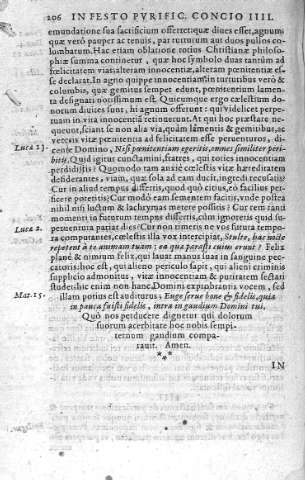 206 IN FESTO PVRIFIC. CONCIO IIII.
emundatione sua sacrificium offerret: quæ diues esset, agnum:
quæ verò pauper ac tenuis, par turturum aut duos pullos co-
lumbarum. Hac etiam oblatione totius Christianæ philoso-
phiæ summa continetur, quæ hoc symbolo duas tantùm ad
fœlicitatem vias: alteram innocentiæ, alteram pœnitentiæ es-
se declarat. In agno quippe innocentiam: in turturibus verò &
columbis, quæ gemitus semper edunt, pœnitentium lamenta
designari notissimum est. Quicumque ergo cælestium do-
norum diuites sunt, hi agnum offerunt: qui videlicet perpe-
tuam in vita innocentiã retinuerunt. At qui hoc præstare ne-
queunt, sciant se non alia via, quàm lãmentis & gemitibus, ac
veteris vitæ pœnitentia ad felicitatem esse peruenturos, di-
Lucæ 13 cente Domino, Nisi pœnitentiam egeritis, omnes similiter peri-
bitis. Quid igitur cunctamini, fratres, qui tories innocentiam
perdidistis? Quomodo tam auitè cœlestis vitæ hæreditatem
desiderantes, viam, quæ sola ad eam ducit, ingredi recusatis?
Cur in aliud tempus differtis, quod quò citius, eò facilius per-
ficere potestis? Cur modò eam sementem facitis, vnde postea
nihil nisi luctum & lachrymas metere possitis? Cur rem tanti
momenti in futurum tempus differtis, cùm ignoretis quid su-
peruentura pariat dies? Cur non timetis ne vos futura tempo-
Lucæ 2. ra computantes, cœlestis illa vox interpellat, Stulte, hac nocte
repetent à te animam tuam: ea quæ parasti cuius erunt? Felix
planè & nimium felix, qui lauat manus suas in sanguine pec-
catoris: hoc est, qui alieno periculo sapit, qui alieni criminis
supplicio admonitus, vitæ innocentiam & puritatem sectari
studet: hic enim non hanc Domini exprobrantis vocem, sed
Mat. 25. illam potius est auditurus: Euge serue bone & fidelis, quia
in pauca fuisti fidelis, intra in gaudium Domini tui.
Quò nos perducere dignetur qui dolorum
suorum acerbitate hoc nobis sempi-
ternum gaudium compa-
rauit. Amen.
IN